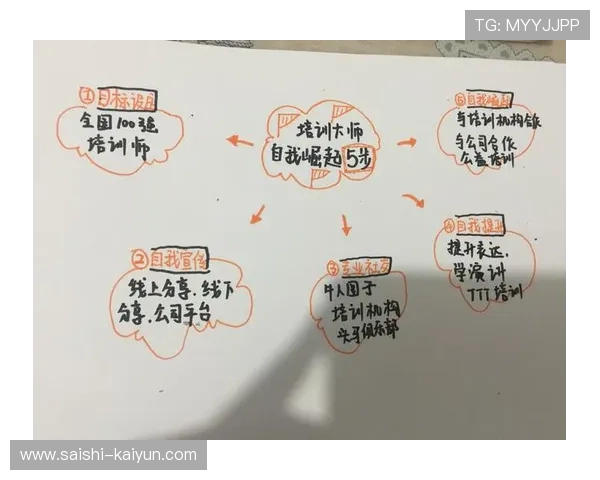 TG: MYYJJPP
培训大师
自我崛起5步
①目标设定
全国100强
培训师
②自我宣传
线上分享、线下
分享、公司平台
③专业社交
牛人圈子
培训机构
头马俱乐部
④自我提升
提升表达、
学演讲
TTT培训
⑤自我崛起
与培训机构合作
与公司合作
公益培训
www.saishi-kaiyun.com